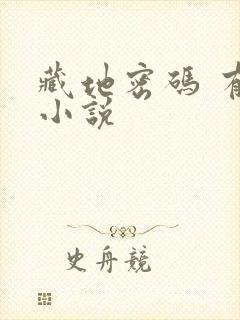 藏地密碼 有
小說
史舟競